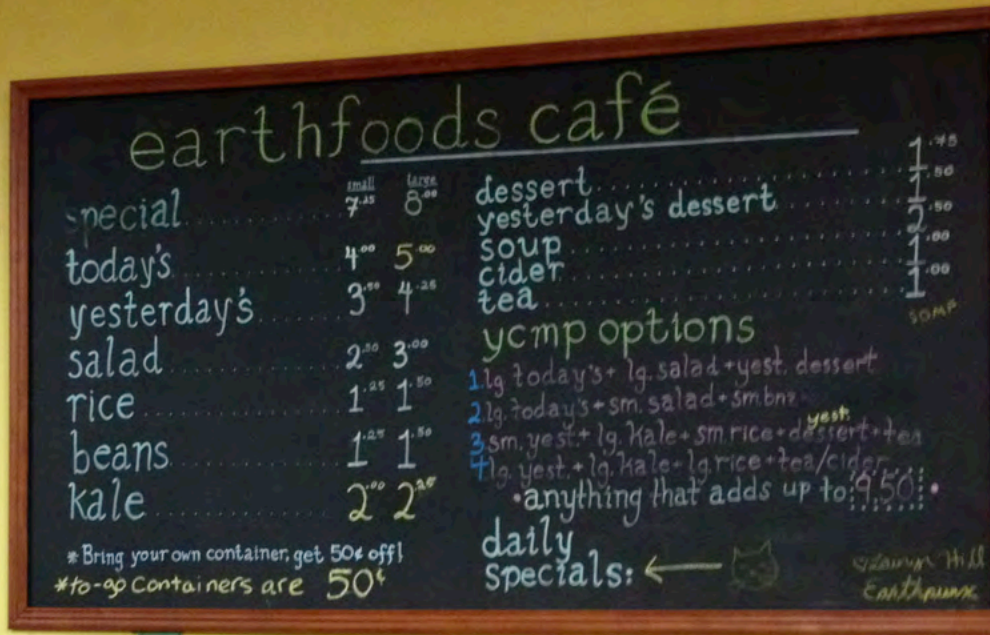 earthfoods café
small large
special 7.25 8.00
today's 4.00 5.00
yesterday's 3.50 4.25
salad 2.50 3.00
rice 1.25 1.50
beans 1.25 1.50
kale 2.00 2.25
* Bring your own container, get 50¢ off!
*to-go containers are 50¢
dessert 1.75
yesterday's dessert 1.50
soup 2.50
cider 1.00
tea 1.00
ycmp options
1. lg. today's + lg. salad + yest. dessert
2 lg. today's + sm. salad + sm bnz
yest.
3 sm. yest. + lg. kale + sm rice + dessert + tea
4 lg. yest. + lg. kale + lg rice + tea/cider
• anything that adds up to 9.50 •
daily
specials: ←
Hill